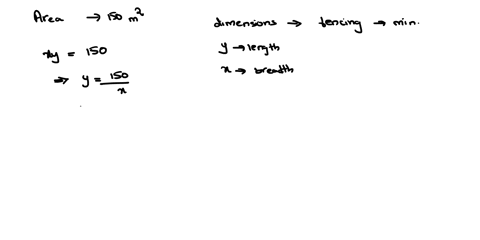 Area → 150 m²
xy = 150
⇒ y = 150/x
dimensions → fencing → min.
y → length
x → breadth